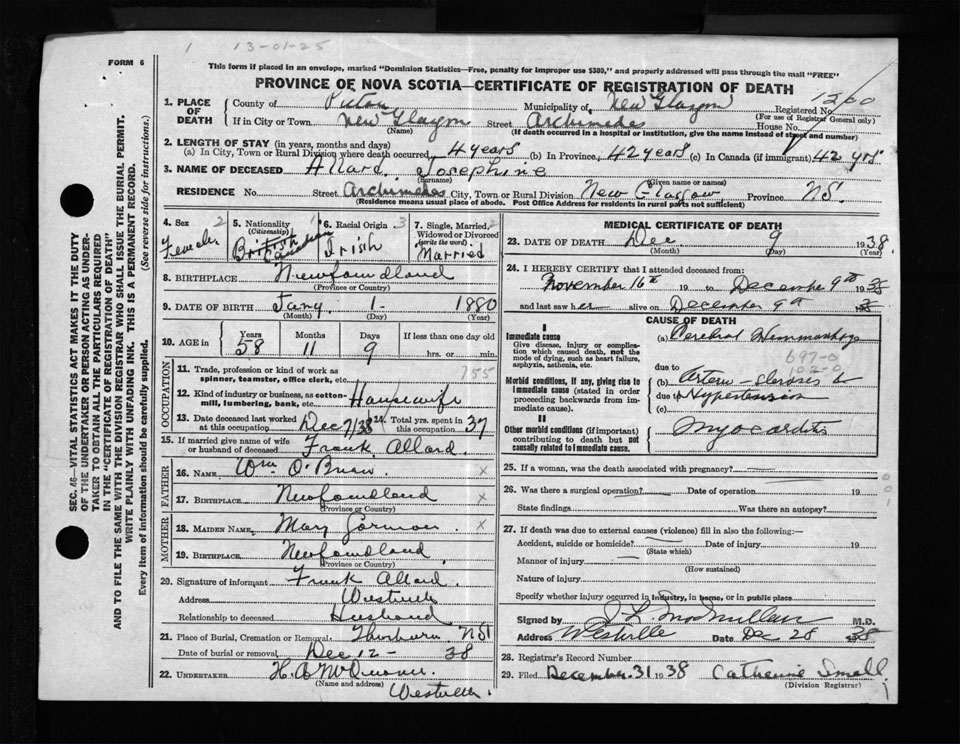 1 13-01-25
FORM 6
This form if placed in an envelope, marked "Dominion Statistics—Free, penalty for improper use $300," and properly addressed will pass through the mail "FREE"
PROVINCE OF NOVA SCOTIA—CERTIFICATE OF REGISTRATION OF DEATH
1. PLACE OF DEATH County of Pictou Municipality of New Glasgow Registered No. 1200
(For use of Registrar General only)
If in City or Town New Glasgow Street Archimedes House No.
(Name) (If death occurred in a hospital or institution, give the name instead of street and number)
2. LENGTH OF STAY (in years, months and days)
(a) In City, Town or Rural Division where death occurred 4 years (b) In Province, 42 years (c) In Canada (if immigrant) 42 yrs.
3. NAME OF DECEASED Allard, Josephine
(Surname) (Given name or names)
RESIDENCE No. Street Archimedes City, Town or Rural Division New Glasgow Province NS.
(Residence means usual place of abode. Post Office Address for residents in rural parts not sufficient)
SEC. 46—VITAL STATISTICS ACT MAKES IT THE DUTY
OF THE UNDERTAKER OR PERSON ACTING AS UNDER-
TAKER TO OBTAIN ALL THE PARTICULARS REQUIRED
IN THE "CERTIFICATE OF REGISTRATION OF DEATH"
AND TO FILE THE SAME WITH THE DIVISION REGISTRAR WHO SHALL ISSUE THE BURIAL PERMIT.
WRITE PLAINLY WITH UNFADING INK. THIS IS A PERMANENT RECORD.
Every item of information should be carefully supplied. (See reverse side for instructions.)
4. Sex 2 5. Nationality (Citizenship) 1 6. Racial Origin 3 7. Single, Married, Widowed or Divorced (write the word) 2
Female British Irish Married
8. BIRTHPLACE Newfoundland
(Province or Country)
9. DATE OF BIRTH Jany 1 - 1880
(Month) (Day) (Year)
10. AGE in Years Months Days If less than one day old
58 11 9 hrs. or min.
OCCUPATION
11. Trade, profession or kind of work as spinner, teamster, office clerk, etc. 755
12. Kind of industry or business, as cotton-mill, lumbering, bank, etc. Housewife
13. Date deceased last worked at this occupation Dec 7/38 14. Total yrs. spent in this occupation 37
15. If married give name of wife or husband of deceased Frank Allard.
FATHER
16. NAME Wm. O'Brien x
17. BIRTHPLACE Newfoundland x
MOTHER
18. MAIDEN NAME Mary Gorman x
19. BIRTHPLACE Newfoundland.
(Province or Country)
20. Signature of informant Frank Allard.
Address Westville
Relationship to deceased Husband
21. Place of Burial, Cremation or Removal Thorburn, NS
Date of burial or removal Dec 12 - 38
22. UNDERTAKER
(Name and address)
Westville.
MEDICAL CERTIFICATE OF DEATH
23. DATE OF DEATH Dec 9 1938.
(Month) (Day) (Year)
24. I HEREBY CERTIFY that I attended deceased from:
November 16th 19 to December 9th 1938
and last saw her alive on December 9th 1938
CAUSE OF DEATH
I
Immediate cause
Give disease, injury or complication which caused death, not the mode of dying, such as heart failure, asphyxia, asthenia, etc.
(a) Cerebral Hemorrhage
697-0
102-0
due to
Morbid conditions, if any, giving rise to immediate cause (stated in order proceeding backwards from immediate cause).
(b) Arterio-sclerosis &
due to Hypertension
(c)
II
Other morbid conditions (if important) contributing to death but not causally related to immediate cause.
Myocarditis
25. If a woman, was the death associated with pregnancy? —
26. Was there a surgical operation? — Date of operation 19
State findings Was there an autopsy?
001
27. If death was due to external causes (violence) fill in also the following:—
Accident, suicide or homicide? Date of injury 19
(State which)
Manner of injury
(How sustained)
Nature of injury
Specify whether injury occurred in industry, in home, or in public place
Signed by J L McMillan M.D.
Address Westville Date Dec 28 1938
28. Registrar's Record Number
29. Filed December 31 1938 Catherine Small
(Division Registrar)